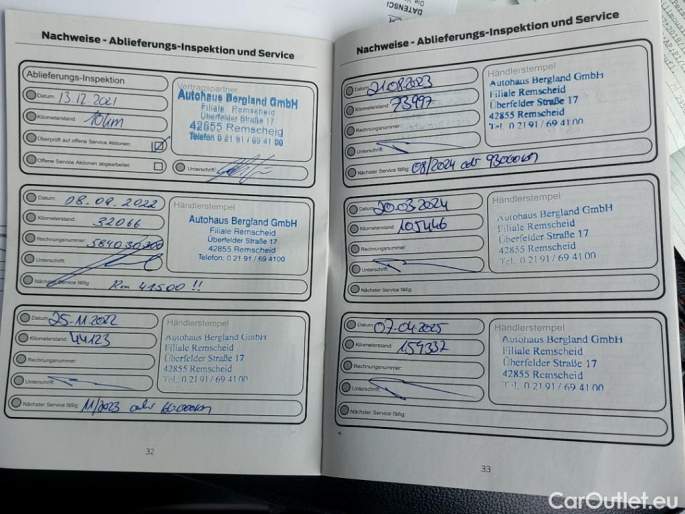 DATENSC
Nachweise - Ablieferungs-Inspektion und Service
Ablieferungs-Inspektion
Datum: 13.12.2021
Kilometerstand: 10km
Überprüft auf offene Service Aktionen:
Offene Service Aktionen abgearbeitet:
Vertragspartner
Autohaus Bergland GmbH
Filiale Remscheid
Überfelder Straße 17
42855 Remscheid
Telefon 0 21 91 / 69 41 00
Unterschrift:
Datum: 08.09.2022
Kilometerstand: 32066
Rechnungsnummer:
Unterschrift:
Nächster Service fällig: Km 41500 !!
Händlerstempel
Autohaus Bergland GmbH
Filiale Remscheid
Überfelder Straße 17
42855 Remscheid
Telefon: 0 21 91 / 69 41 00
Datum: 25.11.2022
Kilometerstand: 44123
Rechnungsnummer:
Unterschrift:
Nächster Service fällig: 11/2023 oder
Händlerstempel
Autohaus Bergland GmbH
Filiale Remscheid
Überfelder Straße 17
42855 Remscheid
Tel. 0 21 91 / 69 41 00
32
Nachweise - Ablieferungs-Inspektion und Service
Datum: 21.08.2023
Kilometerstand: 73997
Rechnungsnummer:
Unterschrift:
Nächster Service fällig: 08/2024 oder 93000km
Händlerstempel
Autohaus Bergland GmbH
Filiale Remscheid
Überfelder Straße 17
42855 Remscheid
Tel. 0 21 91 / 69 41 00
Datum: 20.03.2024
Kilometerstand: 105446
Rechnungsnummer:
Unterschrift:
Nächster Service fällig:
Händlerstempel
Autohaus Bergland GmbH
Filiale Remscheid
Überfelder Straße 17
42855 Remscheid
Tel. 0 21 91 / 69 41 00
Datum: 07.04.2025
Kilometerstand: 159337
Rechnungsnummer:
Unterschrift:
Nächster Service fällig:
Händlerstempel
Autohaus Bergland GmbH
Filiale Remscheid
Überfelder Straße 17
42855 Remscheid
Tel. 0 21 91 / 69 41 00
33
CarOutlet.eu